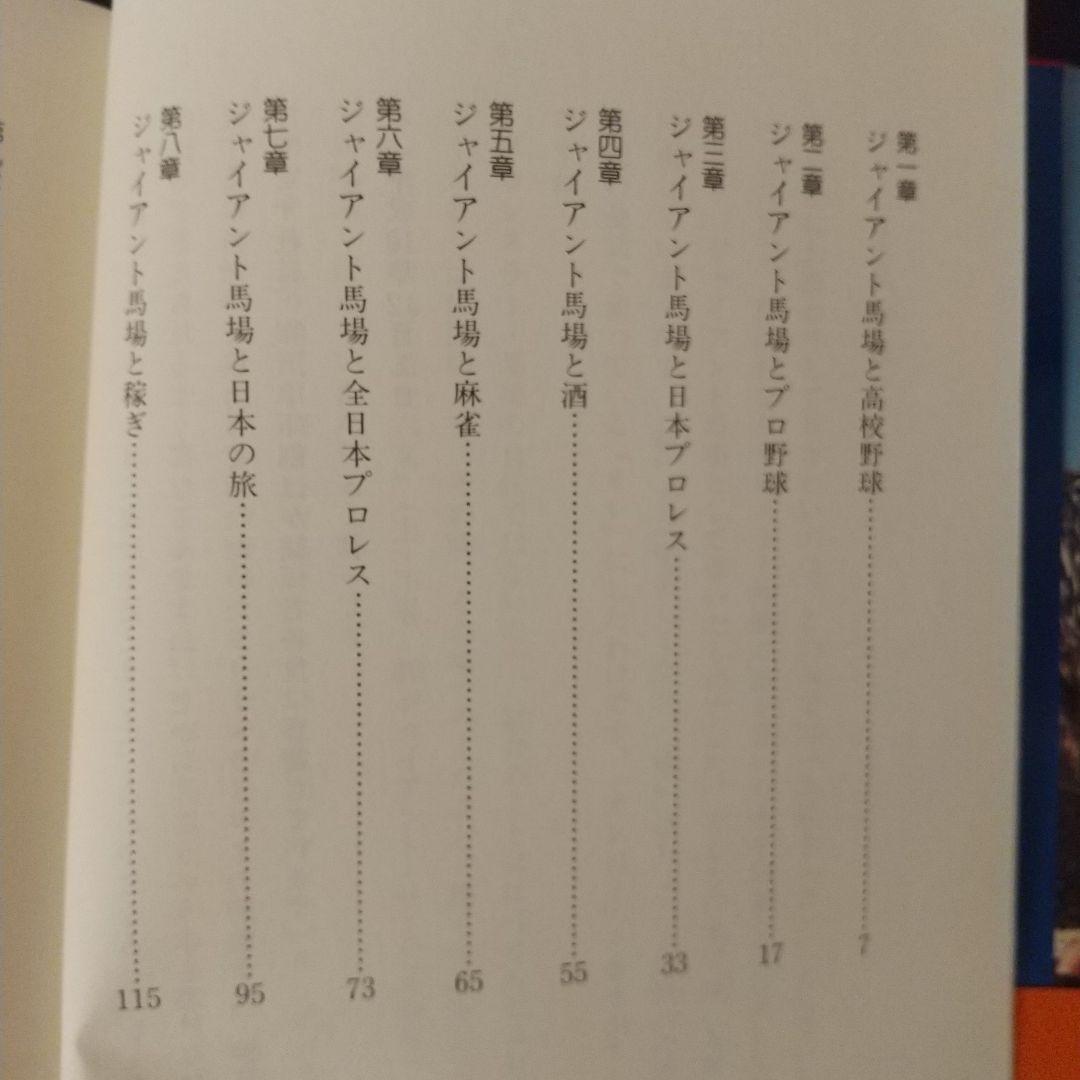 第一章
ジャイアント馬場と高校野球…………7
第二章
ジャイアント馬場とプロ野球…………17
第三章
ジャイアント馬場と日本プロレス…………33
第四章
ジャイアント馬場と酒…………55
第五章
ジャイアント馬場と麻雀…………65
第六章
ジャイアント馬場と全日本プロレス…………73
第七章
ジャイアント馬場と日本の旅…………95
第八章
ジャイアント馬場と稼ぎ…………115